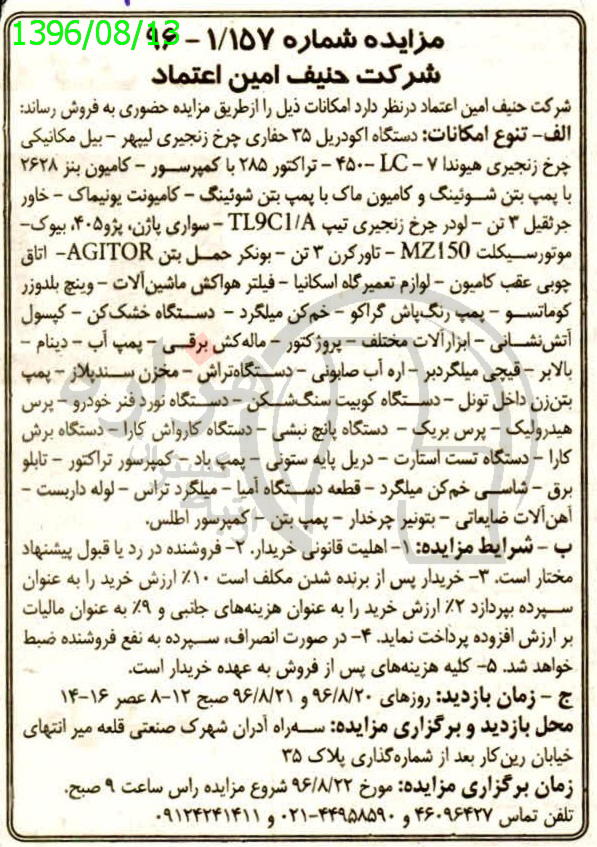 1396/08/13
مزایده شماره ۱/۱۵۷ - ۹۶
شرکت حنیف امین اعتماد
شرکت حنیف امین اعتماد درنظر دارد امکانات ذیل را ازطریق مزایده حضوری به فروش رساند:
الف- تنوع امکانات: دستگاه اکودریل ۳۵ حفاری چرخ زنجیری لیبهر - بیل مکانیکی
چرخ زنجیری هیوندا ۷ - LC -۴۵۰ - تراکتور ۲۸۵ با کمپرسور - کامیون بنز ۲۶۲۸
با پمپ بتن شوئینگ و کامیون ماک با پمپ بتن شوئینگ - کامیونت یونیماک - خاور
جرثقیل ۳ تن - لودر چرخ زنجیری تیپ TL9C1/A - سواری پاژن، پژو۴۰۵، بیوک-
موتورسیکلت MZ150 - تاورکرن ۳ تن - بونکر حمل بتن AGITOR- اتاق
چوبی عقب کامیون - لوازم تعمیرگاه اسکانیا - فیلتر هواکش ماشین‌آلات - وینچ بلدوزر
کوماتسو - پمپ رنگ‌پاش گراکو - خم‌کن میلگرد - دستگاه خشک‌کن - کپسول
آتش‌نشانی - ابزارآلات مختلف - پروژکتور - ماله‌کش برقی - پمپ آب - دینام -
بالابر - قیچی میلگردبر - اره آب صابونی - دستگاه‌تراش - مخزن سندبلاز - پمپ
بتن‌زن داخل تونل - دستگاه کوبیت سنگ‌شکن - دستگاه نورد فنر خودرو - پرس
هیدرولیک - پرس بریک - دستگاه پانچ نبشی - دستگاه کارواش کارا - دستگاه برش
کارا - دستگاه تست استارت - دریل پایه ستونی - پمپ باد - کمپرسور تراکتور - تابلو
برق - شاسی خم‌کن میلگرد - قطعه دستگاه آمیا - میلگرد تراس - لوله داربست -
آهن‌آلات ضایعاتی - بتونیر چرخدار - پمپ بتن - کمپرسور اطلس.
ب - شرایط مزایده: ۱- اهلیت قانونی خریدار. ۲- فروشنده در رد یا قبول پیشنهاد
مختار است. ۳- خریدار پس از برنده شدن مکلف است ۱۰٪ ارزش خرید را به عنوان
سپرده بپردازد ۲٪ ارزش خرید را به عنوان هزینه‌های جانبی و ۹٪ به عنوان مالیات
بر ارزش افزوده پرداخت نماید. ۴- در صورت انصراف، سپرده به نفع فروشنده ضبط
خواهد شد. ۵- کلیه هزینه‌های پس از فروش به عهده خریدار است.
ج - زمان بازدید: روزهای ۹۶/۸/۲۰ و ۹۶/۸/۲۱ صبح ۱۲-۸ عصر ۱۶-۱۴
محل بازدید و برگزاری مزایده: سه‌راه آدران شهرک صنعتی قلعه میر انتهای
خیابان رین‌کار بعد از شماره‌گذاری پلاک ۳۵
زمان برگزاری مزایده: مورخ ۹۶/۸/۲۲ شروع مزایده راس ساعت ۹ صبح.
تلفن تماس ۴۶۰۹۶۴۲۷ و ۴۴۹۵۸۵۹۰-۰۲۱ و ۰۹۱۲۴۲۴۱۴۱۱